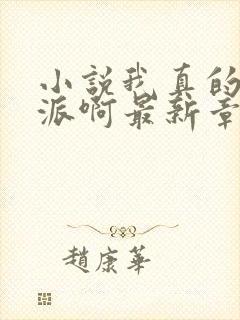 小說我真的
派啊最新章
趙康華